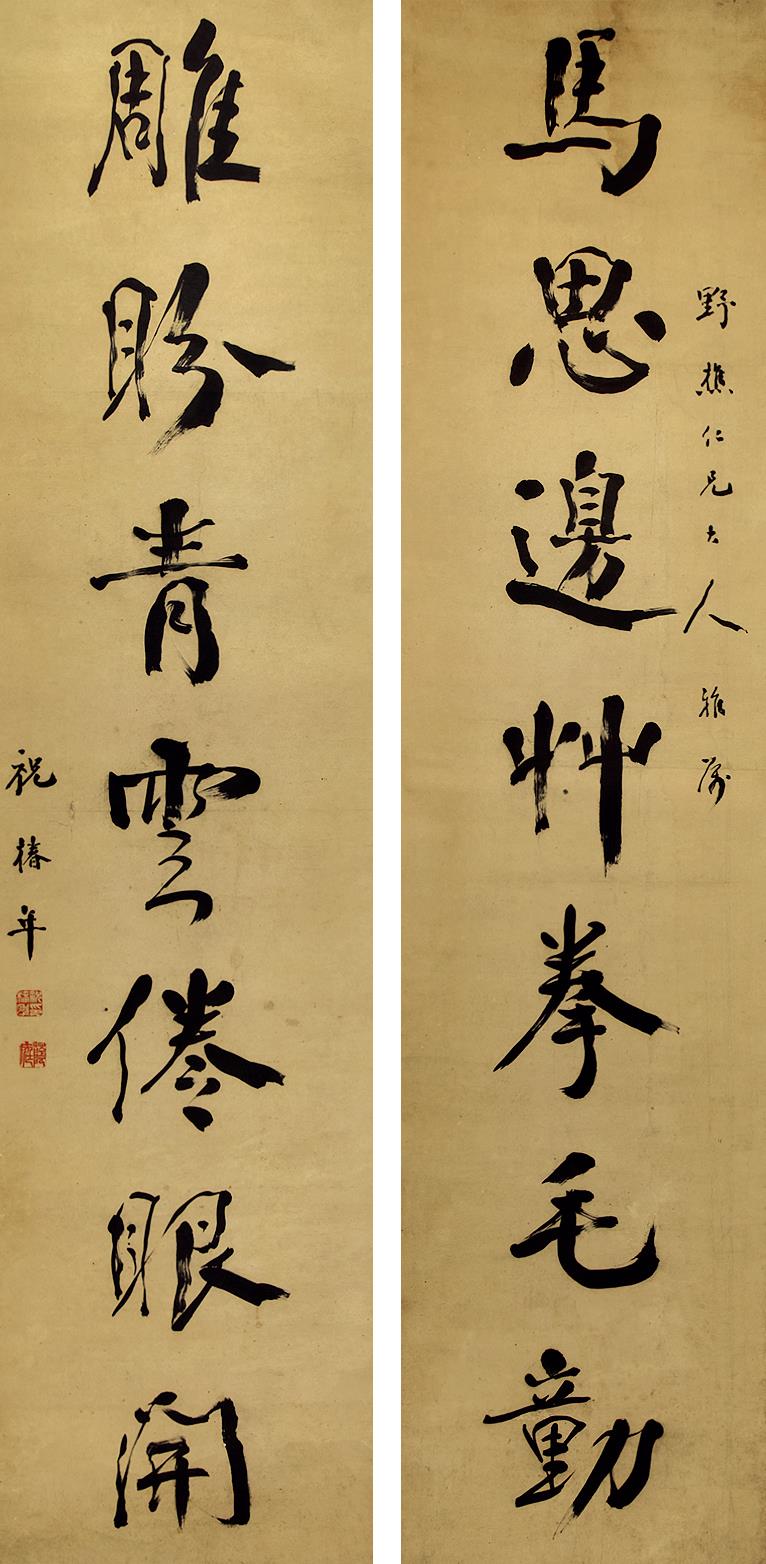 野樵仁兄大人雅屬
馬思邊艸拳毛勭
雕盼青雲倦眼開
祝椿年